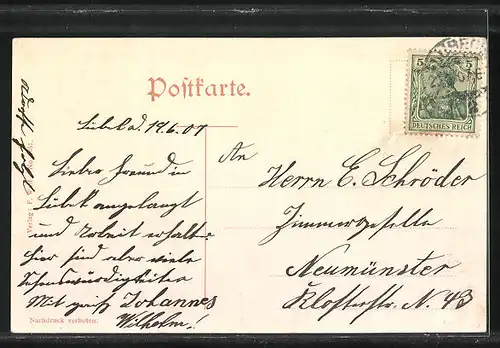 Postkarte.
5
5
DEUTSCHES REICH
Lübek d. 19.6.07
Lieber Freund in
Lübek angelangt
und Arbeit erhalt:
hier sind aber viele
Sehenswürdigkeiten
Mit gruß Johannes
Wilhelm!
An
Herrn E. Schröder
Zimmergeselle
Neumünster
Klosterstr. N. 43
folgt
Verlag
Nachdruck verboten.